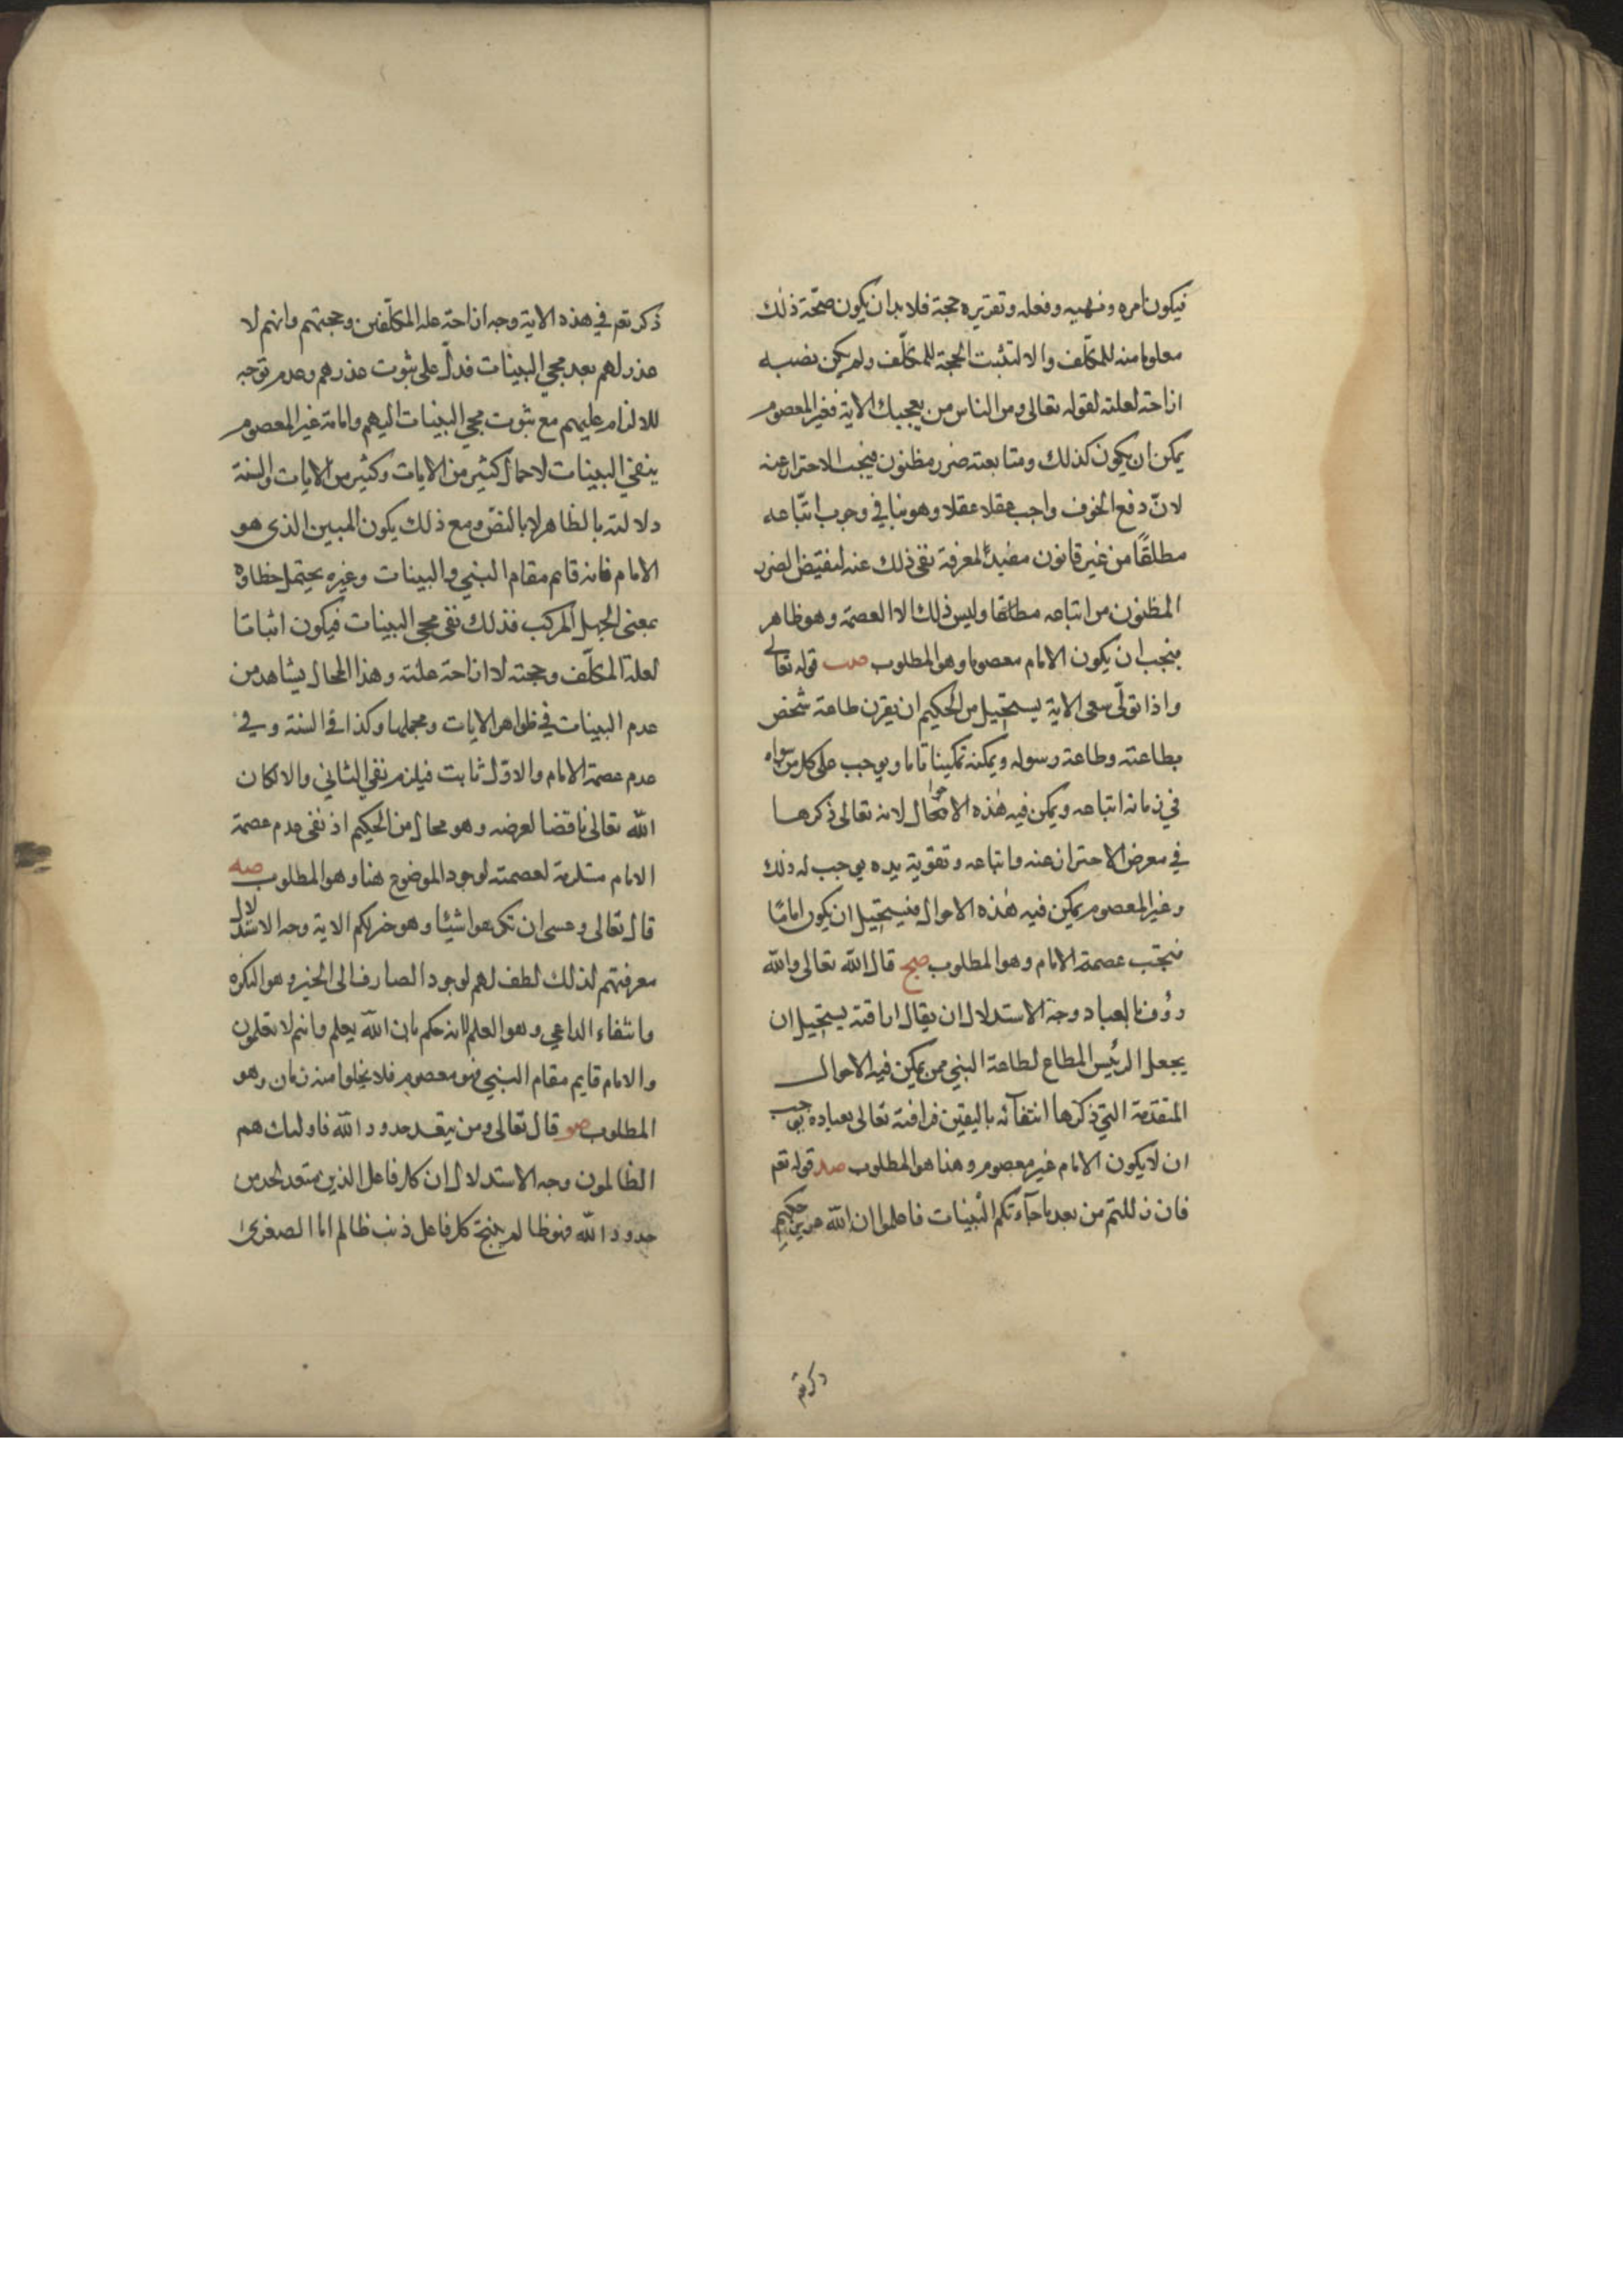 فيكون امره ونهيه وفعله وتقريره حجة فلا بد ان يكون صحة ذلك
معلوما منه للمكلّف والا لم تثبت الحجة للمكلّف ولم يكن نصبه
ازاحة لعلته لقوله تعالى ومن الناس من يعجبك الاية فغير المعصوم
يمكن ان يكون كذلك ومتابعته ضرر مظنون فيجب الاحتراز عنه
لانّ دفع الخوف واجب عقلا وهو ينافي وجوب اتّباعه
مطلقًا من غير قانون مفيد لمعرفة نفي ذلك عنه
المظنون من اتباعه مطلقا وليس ذلك الا العصمة وهو ظاهر
فيجب ان يكون الامام معصوما وهو المطلوب صب قوله تعالى
واذا تولّى سعى الاية يستحيل من الحكيم ان يقرن طاعة شخص
بطاعته وطاعة رسوله ويمكنه تمكينا تاما ويوجب على كل من سواه
في زمانه اتباعه ويمكن فيه هذه الاحوال لانه تعالى ذكرها
في معرض الاحتراز عنه واتباعه وتقوية يده يوجب له ذلك
وغير المعصوم يمكن فيه هذه الاحوال فيستحيل ان يكون امامًا
فيجب عصمة الامام وهو المطلوب صج قال الله تعالى والله
رؤف بالعباد وجه الاستدلال ان يقال ارافته يستحيل ان
يجعل الرئيس المطاع لطاعة النبي من يمكن فيه الاحوال
المتقدمة التي ذكرها انتفآئه باليقين فرافته تعالى بعباده يوجب
ان لا يكون الامام غير معصوم وهذا هو المطلوب صد قوله تعم
فان زللتم من بعد ما جآءتكم البيّنات فاعلموا ان الله عزيز حكيم
ذكر تعم
ذكر تعم في هذه الاية وجه ازاحة علة المكلّفين وحجتهم وانهم لا
عذر لهم بعد مجي البينات فدلّ على ثبوت عذرهم وعدم توجه
للالزام عليهم مع ثبوت مجي البينات اليهم وامامة غير المعصوم
ينفي البينات لاحمال كثير من الايات وكثير من الايات والسنة
دلالته بالظاهر لا بالنصّ ومع ذلك يكون المبين الذي هو
الامام فانه قايم مقام النبي والبينات وغيره يحتمل خطاؤه
بمعنى الجهل المركب فذلك نفى مجي البينات فيكون اثباتا
لعلة المكلّف وحجته لا ازاحة علته وهذا المحال يشاهد من
عدم البينات في ظواهر الايات ومجملها وكذا في السنة وفي
عدم عصمة الامام والاوّل ثابت فيلزم نفي الثاني والا لكان
الله تعالى ناقضا لغرضه وهو محال من الحكيم اذ نفي عدم عصمة
الامام مستلزمة لعصمته لوجود الموضوع هنا وهو المطلوب صه
قال تعالى وعسى ان تكرهوا شيئا وهو خير لكم الاية وجه الاستدلال
معرفتهم لذلك لطف لهم لوجود الصارف الى الخير وهو الكره
وانتفاء الداعي وهو العلم لانه حكم بان الله يعلم وانتم لا تعلمون
والامام قايم مقام النبي فهو معصوم فلا يخلوا منه زمان وهو
المطلوب صو قال تعالى ومن يتعد حدود الله فاولئك هم
الظالمون وجه الاستدلال ان كل فاعل الذنب متعد لحد من
حدود الله فهو ظالم ينتج كل فاعل ذنب ظالم اما الصغرى